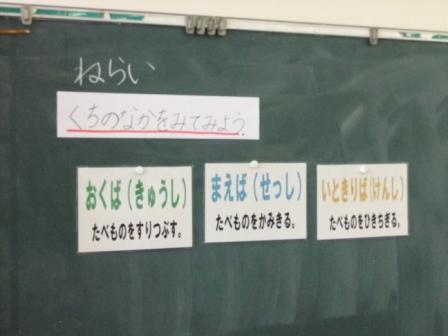 ねらい
くちのなかをみてみよう.
おくば(きゅうし)
たべものをすりつぶす。
まえば(せっし)
たべものをかみきる。
いときりば(けんし)
たべものをひきちぎる。